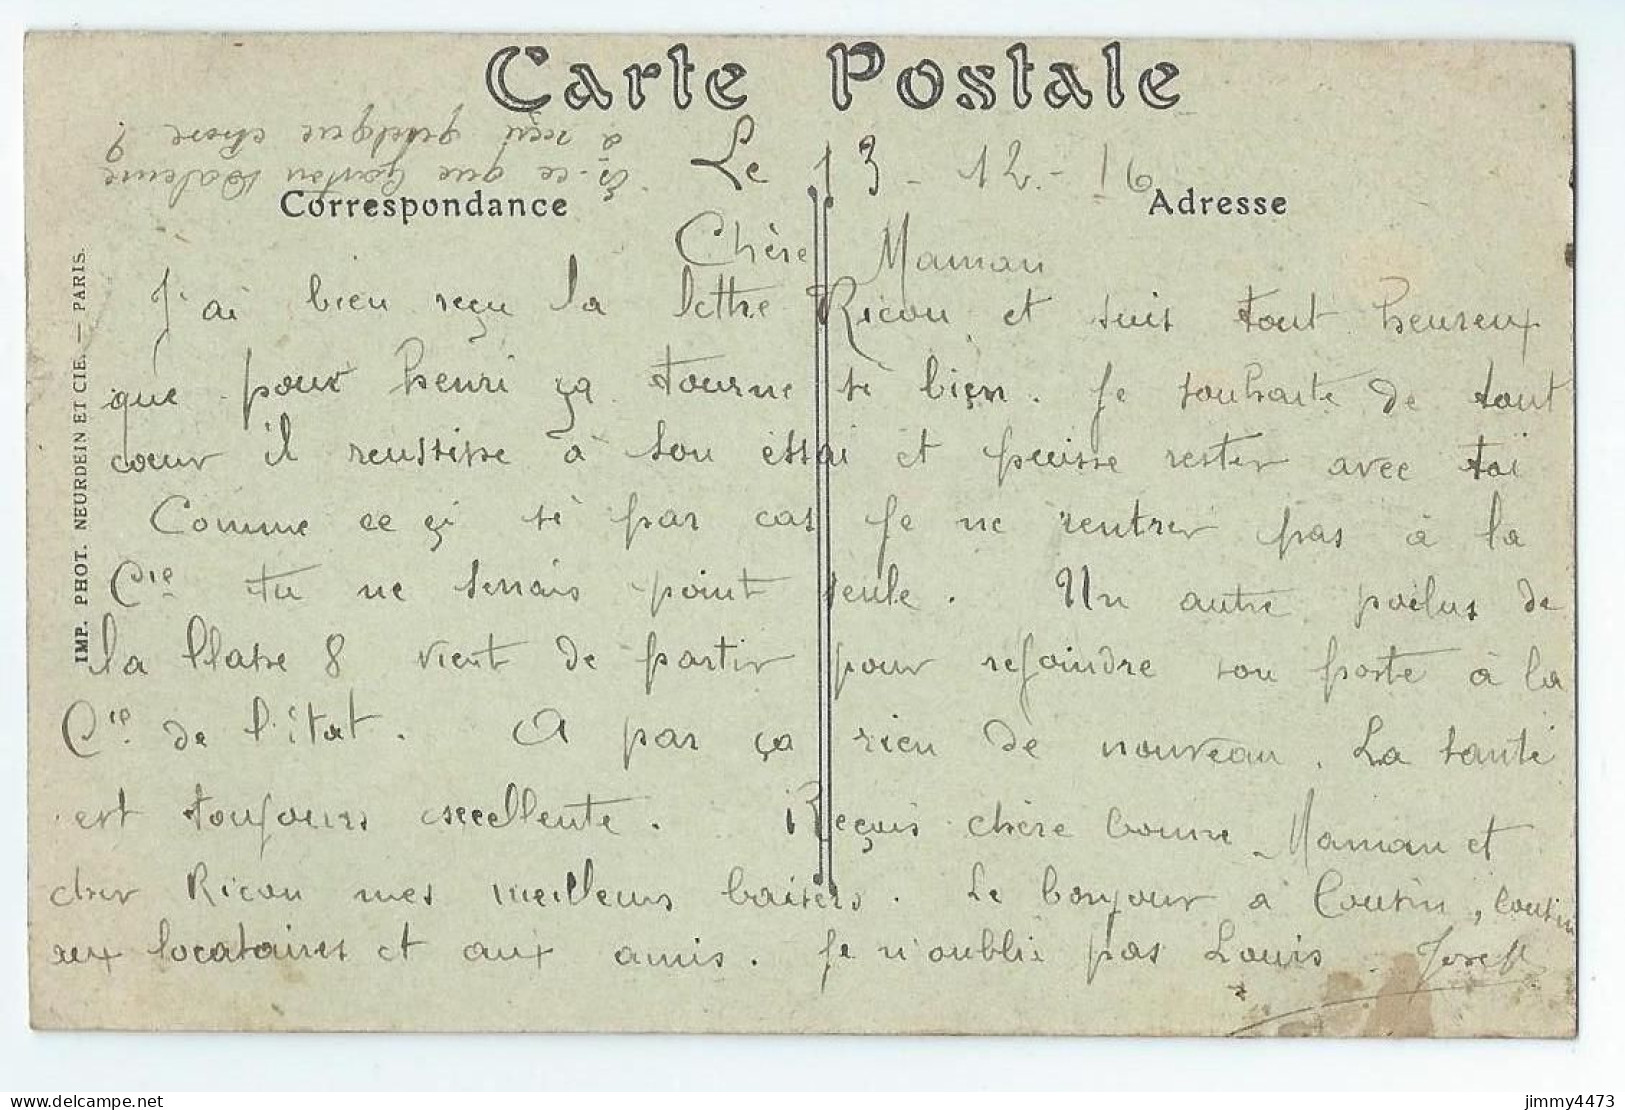 Carte Postale
Le 13 - 12 - 16
Correspondance
Adresse
Chère Maman
J'ai bien reçu la lettre Ricou et suis tout heureux
que pour henri ça tourne si bien. Je souhaite de tout
cœur il reussisse à son essai et puisse rester avec toi
Comme ce çi si par cas je ne rentrer pas à la
Cie tu ne serrais point seule. Un autre poilus de
la Classe 8 vient de partir pour rejoindre son poste à la
Cie de l'état. A par ça rien de nouveau. La santé
est toujours excellente. Reçois chère bonne Maman et
cher Ricou mes meilleurs baisers. Le bonjour à Cousin, Cousin
aux locataires et aux amis. Je n'oublie pas Louis. Joseph
Es-ce que Gaston
a reçu quelque chose ?
IMP. PHOT. NEURDEIN ET CIE. — PARIS.
delcampe.net
jimmy4473